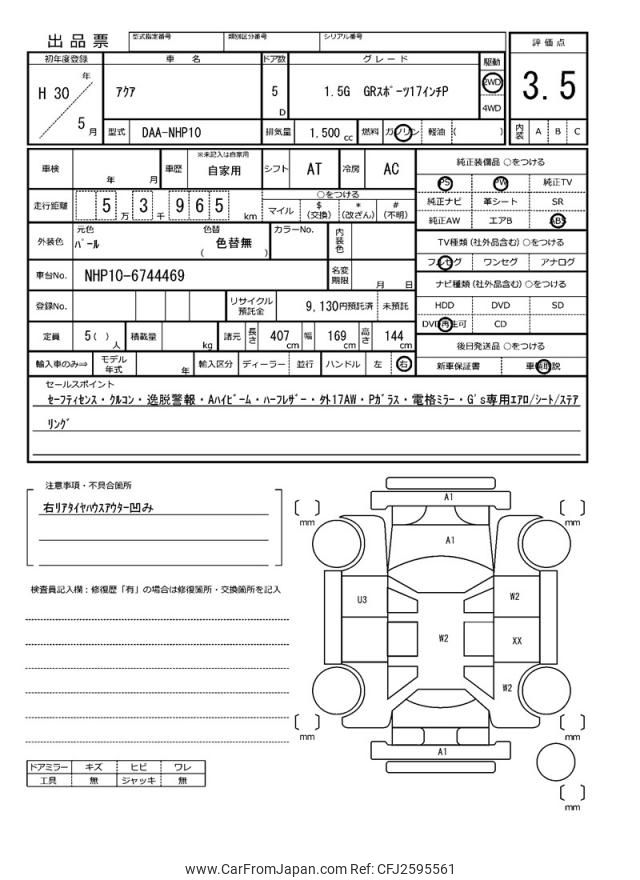 出品票 型式指定番号 類別区分番号 シリアル番号
評価点
初年度登録 車名 ドア数 グレード 駆動
H 30 年 5 月
アクア
5 D
1.5G GRスポーツ17インチP
2WD
4WD
3.5
型式 DAA-NHP10 排気量 1,500 cc 燃料 ガソリン 軽油 ( )
内装 A B C
車検 年 月 車歴 ※未記入は自家用 自家用 シフト AT 冷房 AC
走行距離 5 万 3 千 9 6 5 km
○をつける
マイル $ (交換) * (改ざん) # (不明)
外装色 元色 パール 色替 色替無 ( ) カラーNo. 内装色
車台No. NHP10-6744469 名変期限 月 日
登録No. リサイクル預託金 9,130円預託済 未預託
定員 5( ) 人 積載量 kg 諸元 長さ 407 cm 幅 169 cm 高さ 144 cm
輸入車のみ⇒ モデル年式 年 輸入区分 ディーラー 並行 ハンドル 左 右
純正装備品 ○をつける
PS PW 純正TV
純正ナビ 革シート SR
純正AW エアB ABS
TV種類(社外品含む) ○をつける
フルセグ ワンセグ アナログ
ナビ種類(社外品含む) ○をつける
HDD DVD SD
DVD再生可 CD
後日発送品 ○をつける
新車保証書 車輌取説
セールスポイント
セーフティセンス・クルコン・逸脱警報・Aハイビーム・ハーフレザー・外17AW・Pガラス・電格ミラー・G's専用エアロ/シート/ステア
リング
注意事項・不具合箇所
右リアタイヤハウスアウター凹み
検査員記入欄：修復歴「有」の場合は修復箇所・交換箇所を記入
ドアミラー キズ ヒビ ワレ
工具 無 ジャッキ 無
A1
mm mm
A1
U3 W2
W2 XX
W2
mm mm
A1
mm
www.CarFromJapan.com Ref: CFJ2595561